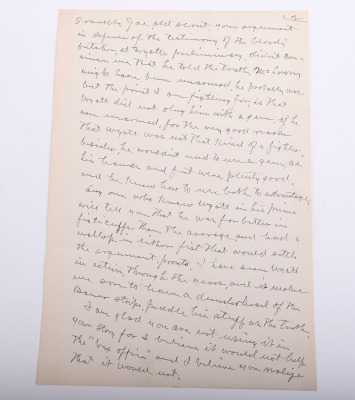 2
Frankly Joe old scout your argument
in defense of the testimony of the bloody
butcher, at Wyatts preliminary, didn't con-
vince me that he told the truth. McLowery
might have been unarmed, he probably was
but the point I am fighting for, is that
Wyatt did not plug him with a gun, if he
was unarmed, for the very good reason
that Wyatt was not that kind of a fighter,
besides, he wouldn't need to use a gun, as
his hands and fist were plenty good,
and he knew how to use both to advantage,
Any one who knew Wyatt in his prime
will tell you that he was far better in
fisticuffs than the average and had a
wallop in either fist that would settle
the argument, pronto. I have seen Wyatt
in action, through the years, and it makes
me sore to hear a dunderhead of the
stripe, peddle his stuff as the truth.
I am glad you are not using it in
your story for I believe it would not help
the "box office" and I believe you realize
that it would not.